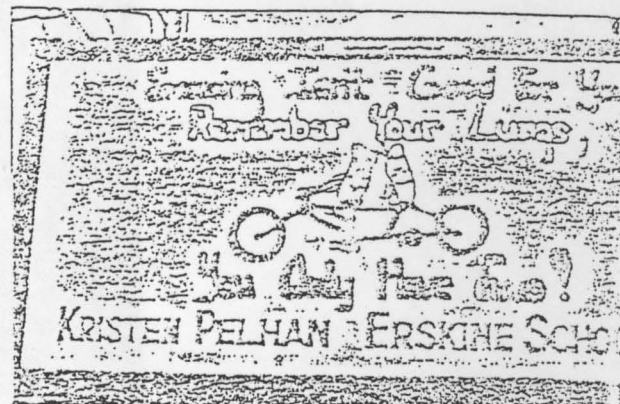 Smoking Isn't Good For Yo
Remember Your Lungs,
You Only Have Two!
KRISTEN PELHAN ERSKINE SCHO